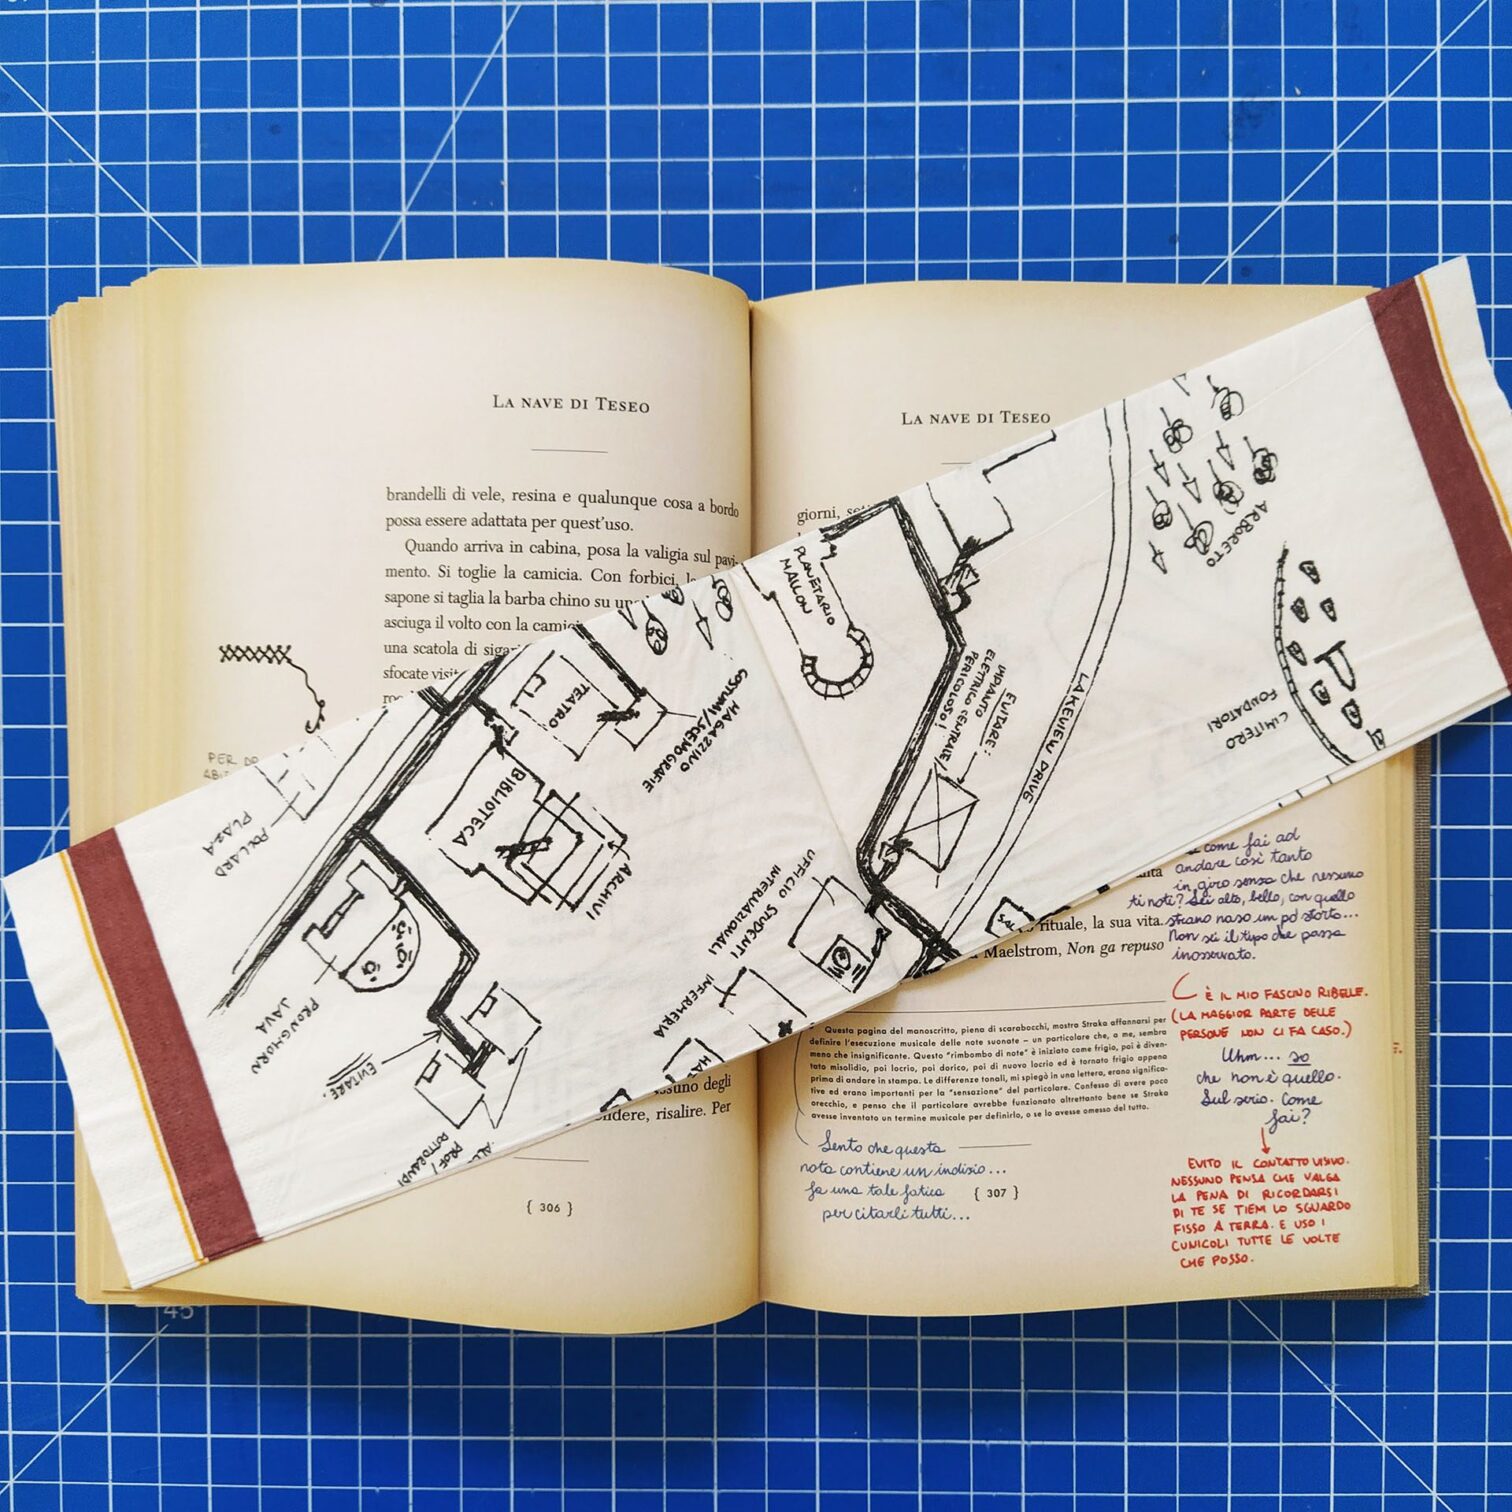 LA NAVE DI TESEO
brandelli di vele, resina e qualunque cosa a bordo
possa essere adattata per quest'uso.
Quando arriva in cabina, posa la valigia sul pavi-
mento. Si toglie la camicia. Con forbici,
sapone si taglia la barba chino su
asciuga il volto con la
una scatola di
sfocate
PER
degli
risalire. Per
{ 306 }
POLLARD
PLAZA
PRONGHORN
JAVA
EVITARE.
TEATRO
BIBLIOTECA
ARCHIVI
MAGAZZINO
COSTUMI/SCENOGRAFIE
UFFICIO STUDENTI
INTERNAZIONALI
INFERMERIA
PROF/
DOTTORANDI
PLANETARIO
MALLON
EVITARE:
IMPIANTO
ELETTRICO CENTRALE/
PERICOLOSO!
LAKEVIEW DRIVE
ARBORETO
CIMITERO
FONDATORI
LA NAVE DI TESEO
giorni,
rituale, la sua vita.
Maelstrom, Non ga repuso
come fai ad
andare così tanto
in giro senza che nessuno
ti noti? Sei alto, bello, con quello
strano naso un pò storto...
Non sei il tipo che passa
inosservato.
È IL MIO FASCINO RIBELLE.
(LA MAGGIOR PARTE DELLE
PERSONE NON CI FA CASO.)
Uhm... so
che non è quello.
Sul serio. Come
fai?
EVITO IL CONTATTO VISIVO.
NESSUNO PENSA CHE VALGA
LA PENA DI RICORDARSI
DI TE SE TIENI LO SGUARDO
FISSO A TERRA. E USO I
CUNICOLI TUTTE LE VOLTE
CHE POSSO.
Questa pagina del manoscritto, piena di scarabocchi, mostra Straka affannarsi per
definire l'esecuzione musicale delle note suonate – un particolare che, a me, sembra
meno che insignificante. Questo "rimbombo di note" è iniziato come frigio, poi è diven-
tato misolidio, poi locrio, poi dorico, poi di nuovo locrio ed è tornato frigio appena
prima di andare in stampa. Le differenze tonali, mi spiegò in una lettera, erano significa-
tive ed erano importanti per la "sensazione" del particolare. Confesso di avere poco
orecchio, e penso che il particolare avrebbe funzionato altrettanto bene se Straka
avesse inventato un termine musicale per definirlo, o se lo avesse omesso del tutto.
Sento che questa
nota contiene un indizio...
fa una tale fatica
per citarli tutti...
{ 307 }
45